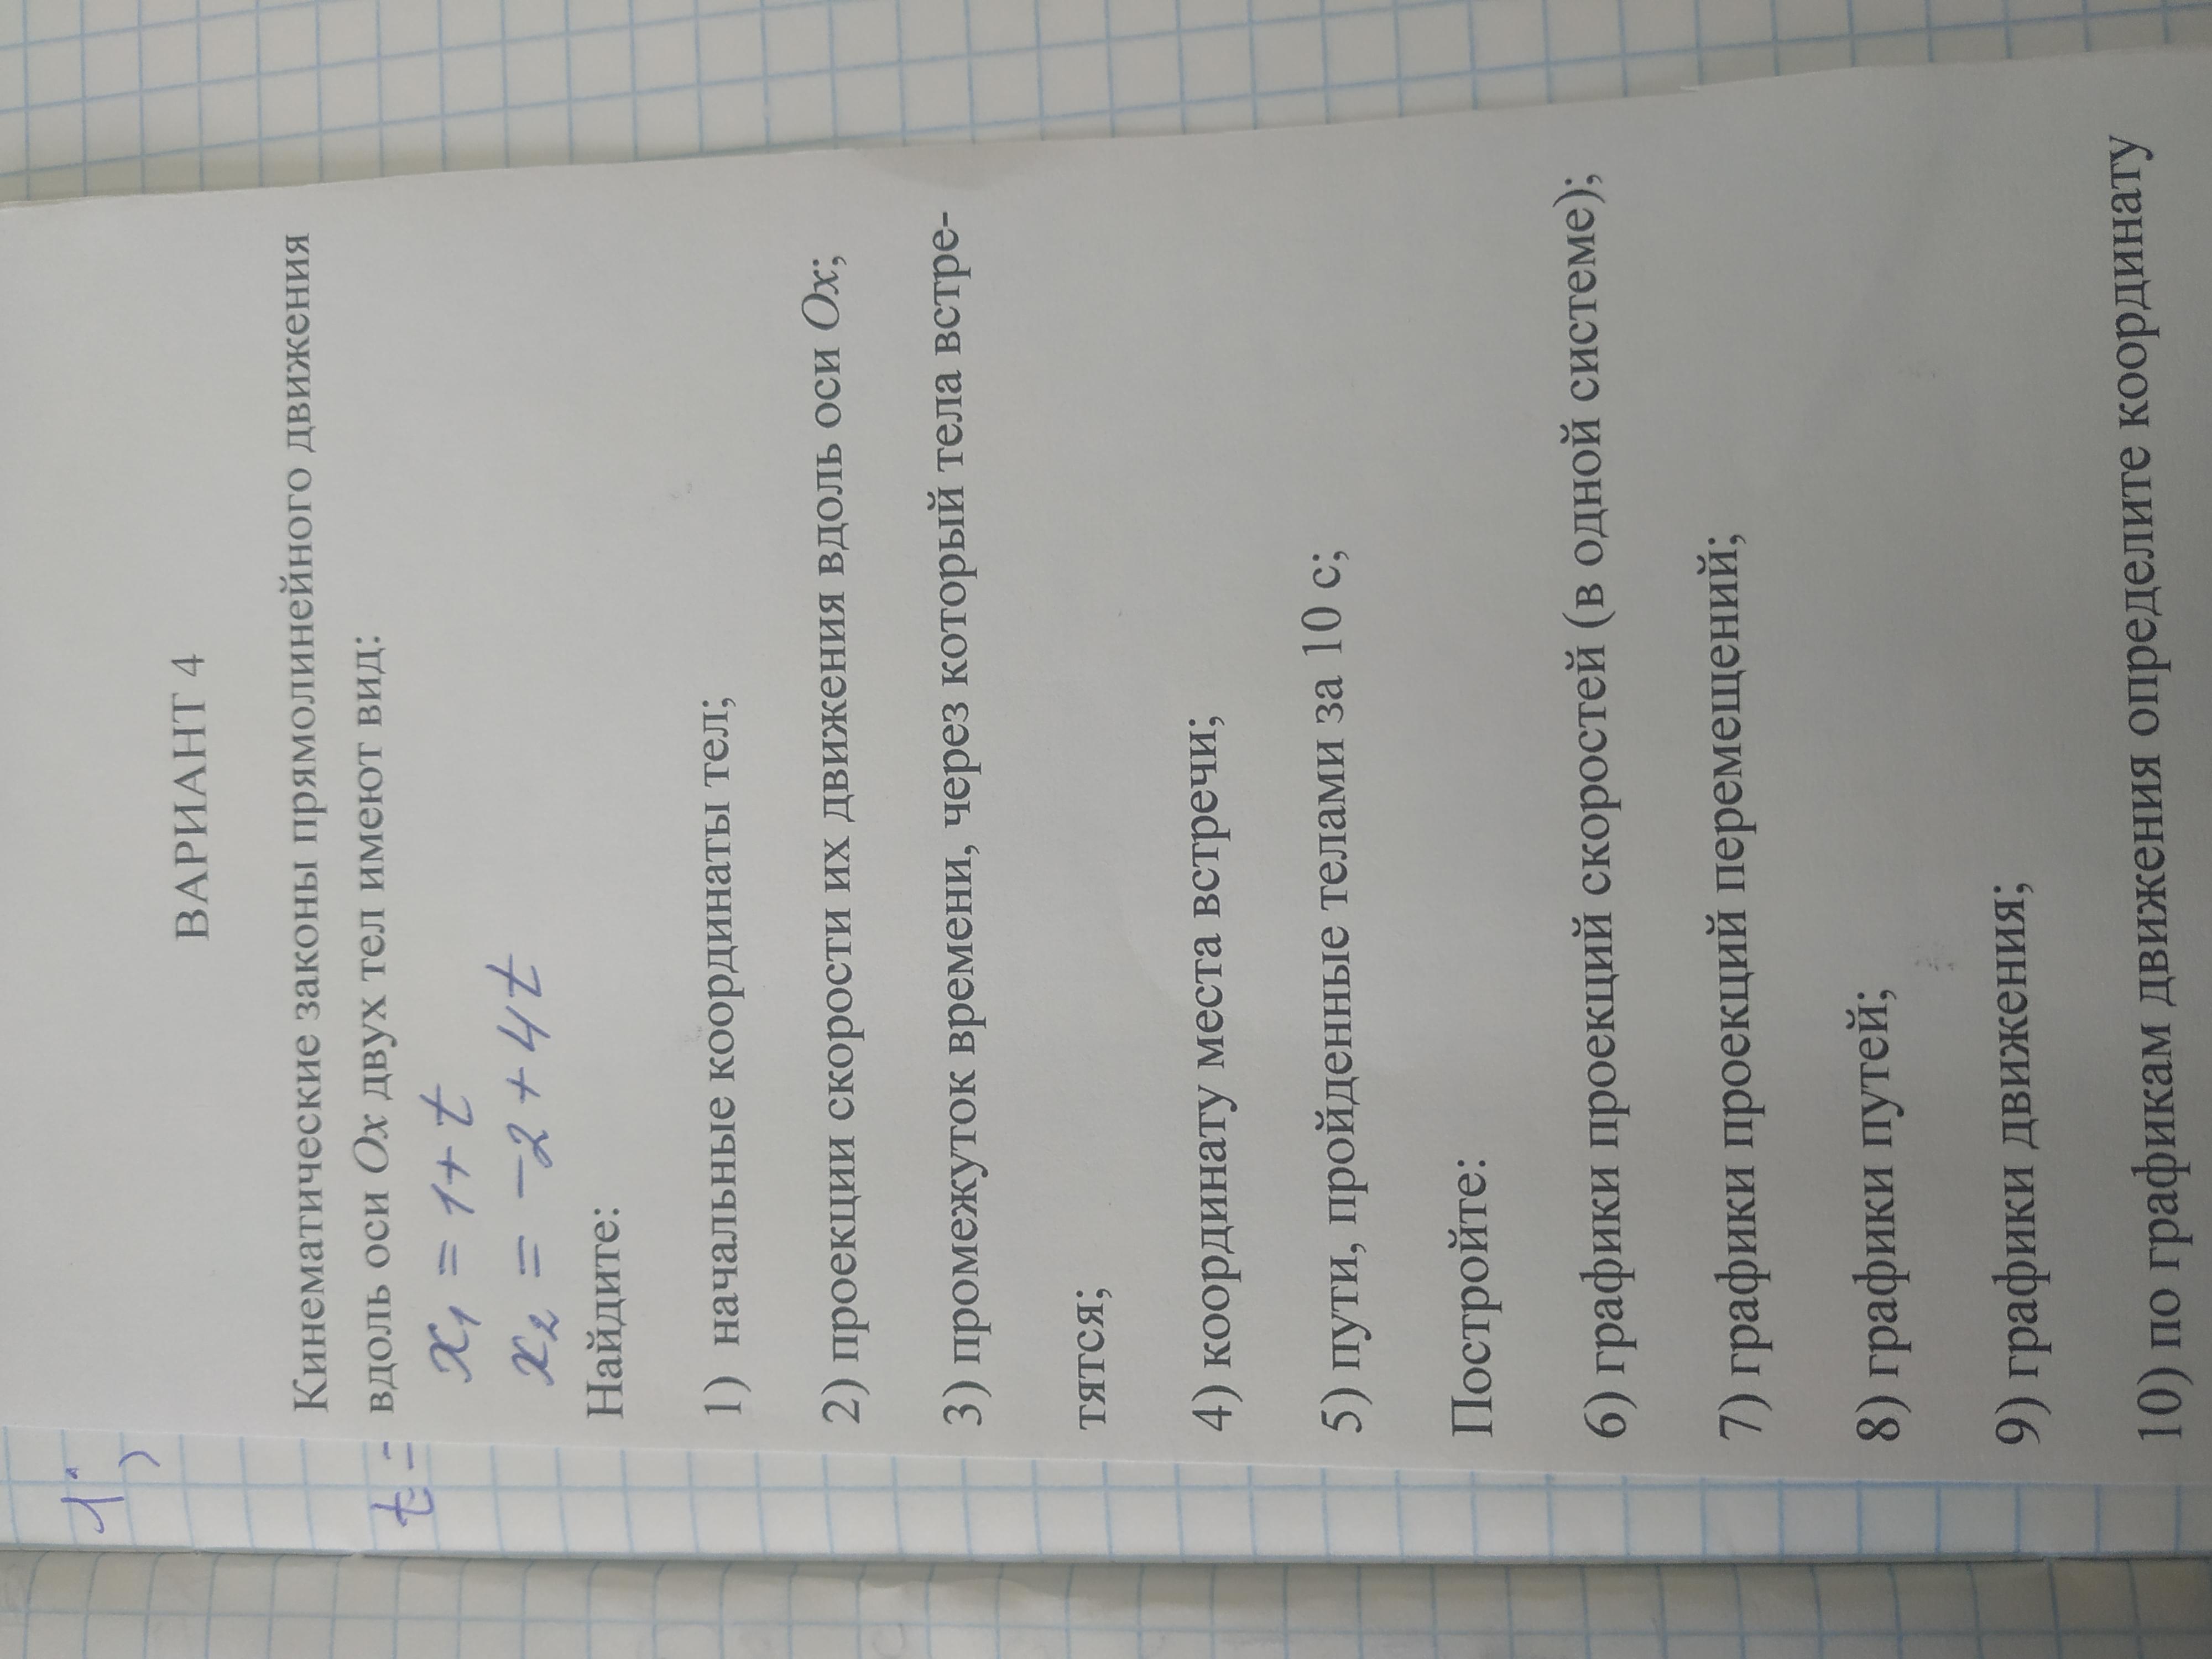 1)
t =
ВАРИАНТ 4
Кинематические законы прямолинейного движения
вдоль оси Ox двух тел имеют вид:
x₁ = 1 + t
x₂ = −2 + 4t
Найдите:
1) начальные координаты тел;
2) проекции скорости их движения вдоль оси Ox;
3) промежуток времени, через который тела встре-
тятся;
4) координату места встречи;
5) пути, пройденные телами за 10 с;
Постройте:
6) графики проекций скоростей (в одной системе);
7) графики проекций перемещений;
8) графики путей;
9) графики движения;
10) по графикам движения определите координату